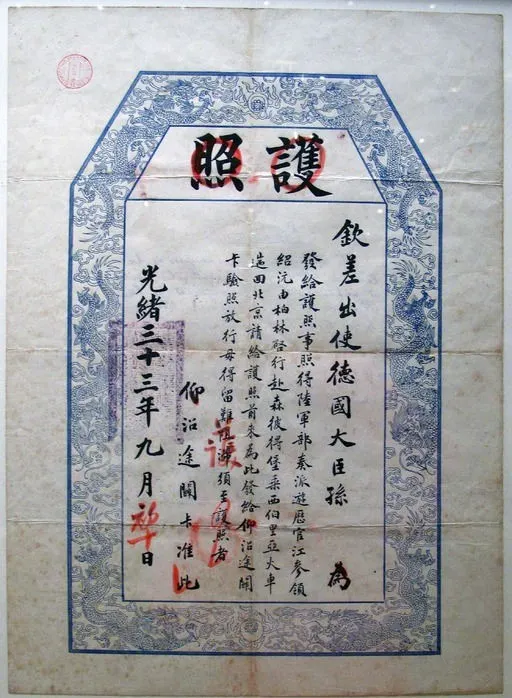 護照
欽差出使德國大臣孫 為
發給護照事照得陸軍部奏派遊歷官江參領
紹沅由柏林啓行赴森彼得堡乘西伯里亞火車
遄回北京請給護照前來為此發給仰沿途關
卡驗照放行毋得留難阻滯須至護照者
仰沿途關卡准此
光緒三十三年九月初日